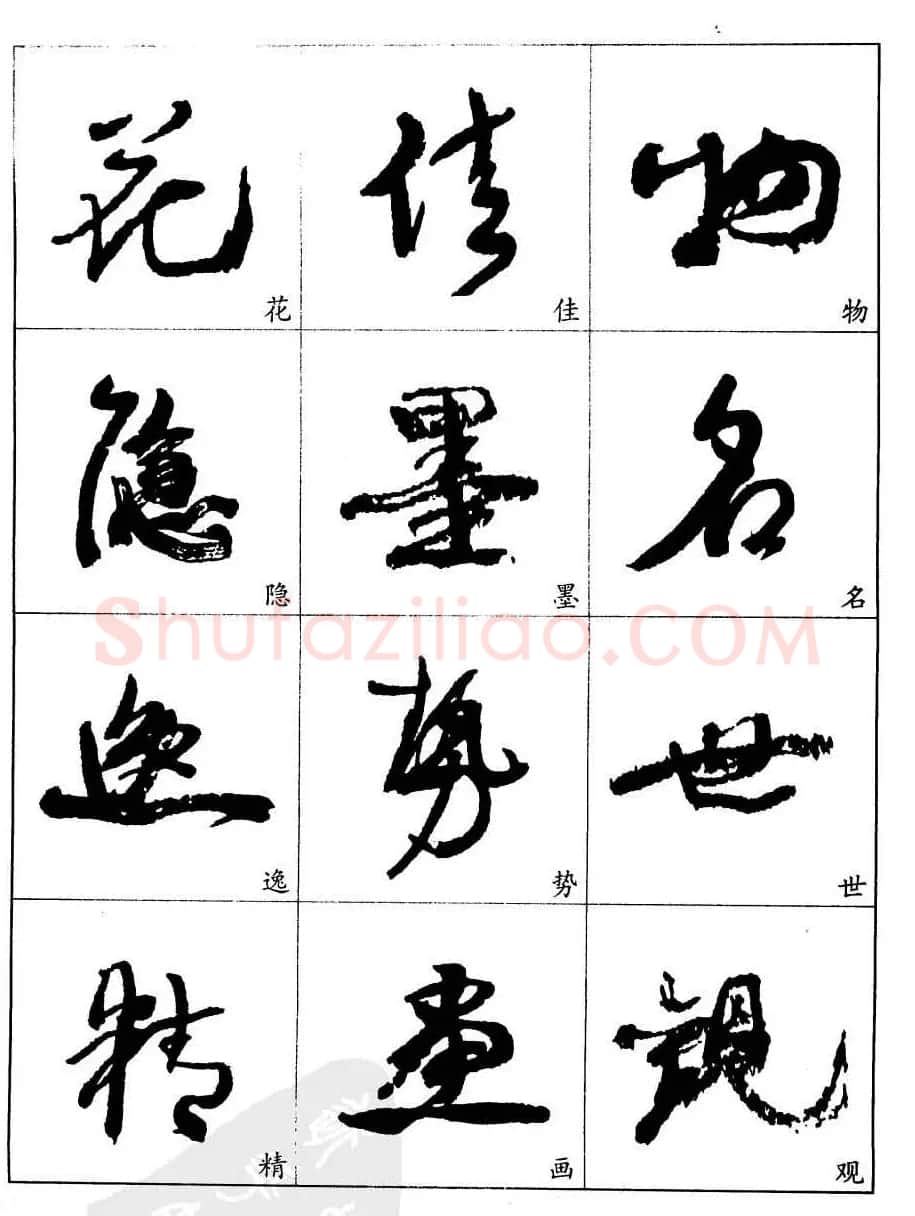 花 佳 物
花 佳 物
隱 墨 名
隐 墨 名
Shufaziliao.COM
逸 勢 世
逸 势 世
精 畫 觀
精 画 观